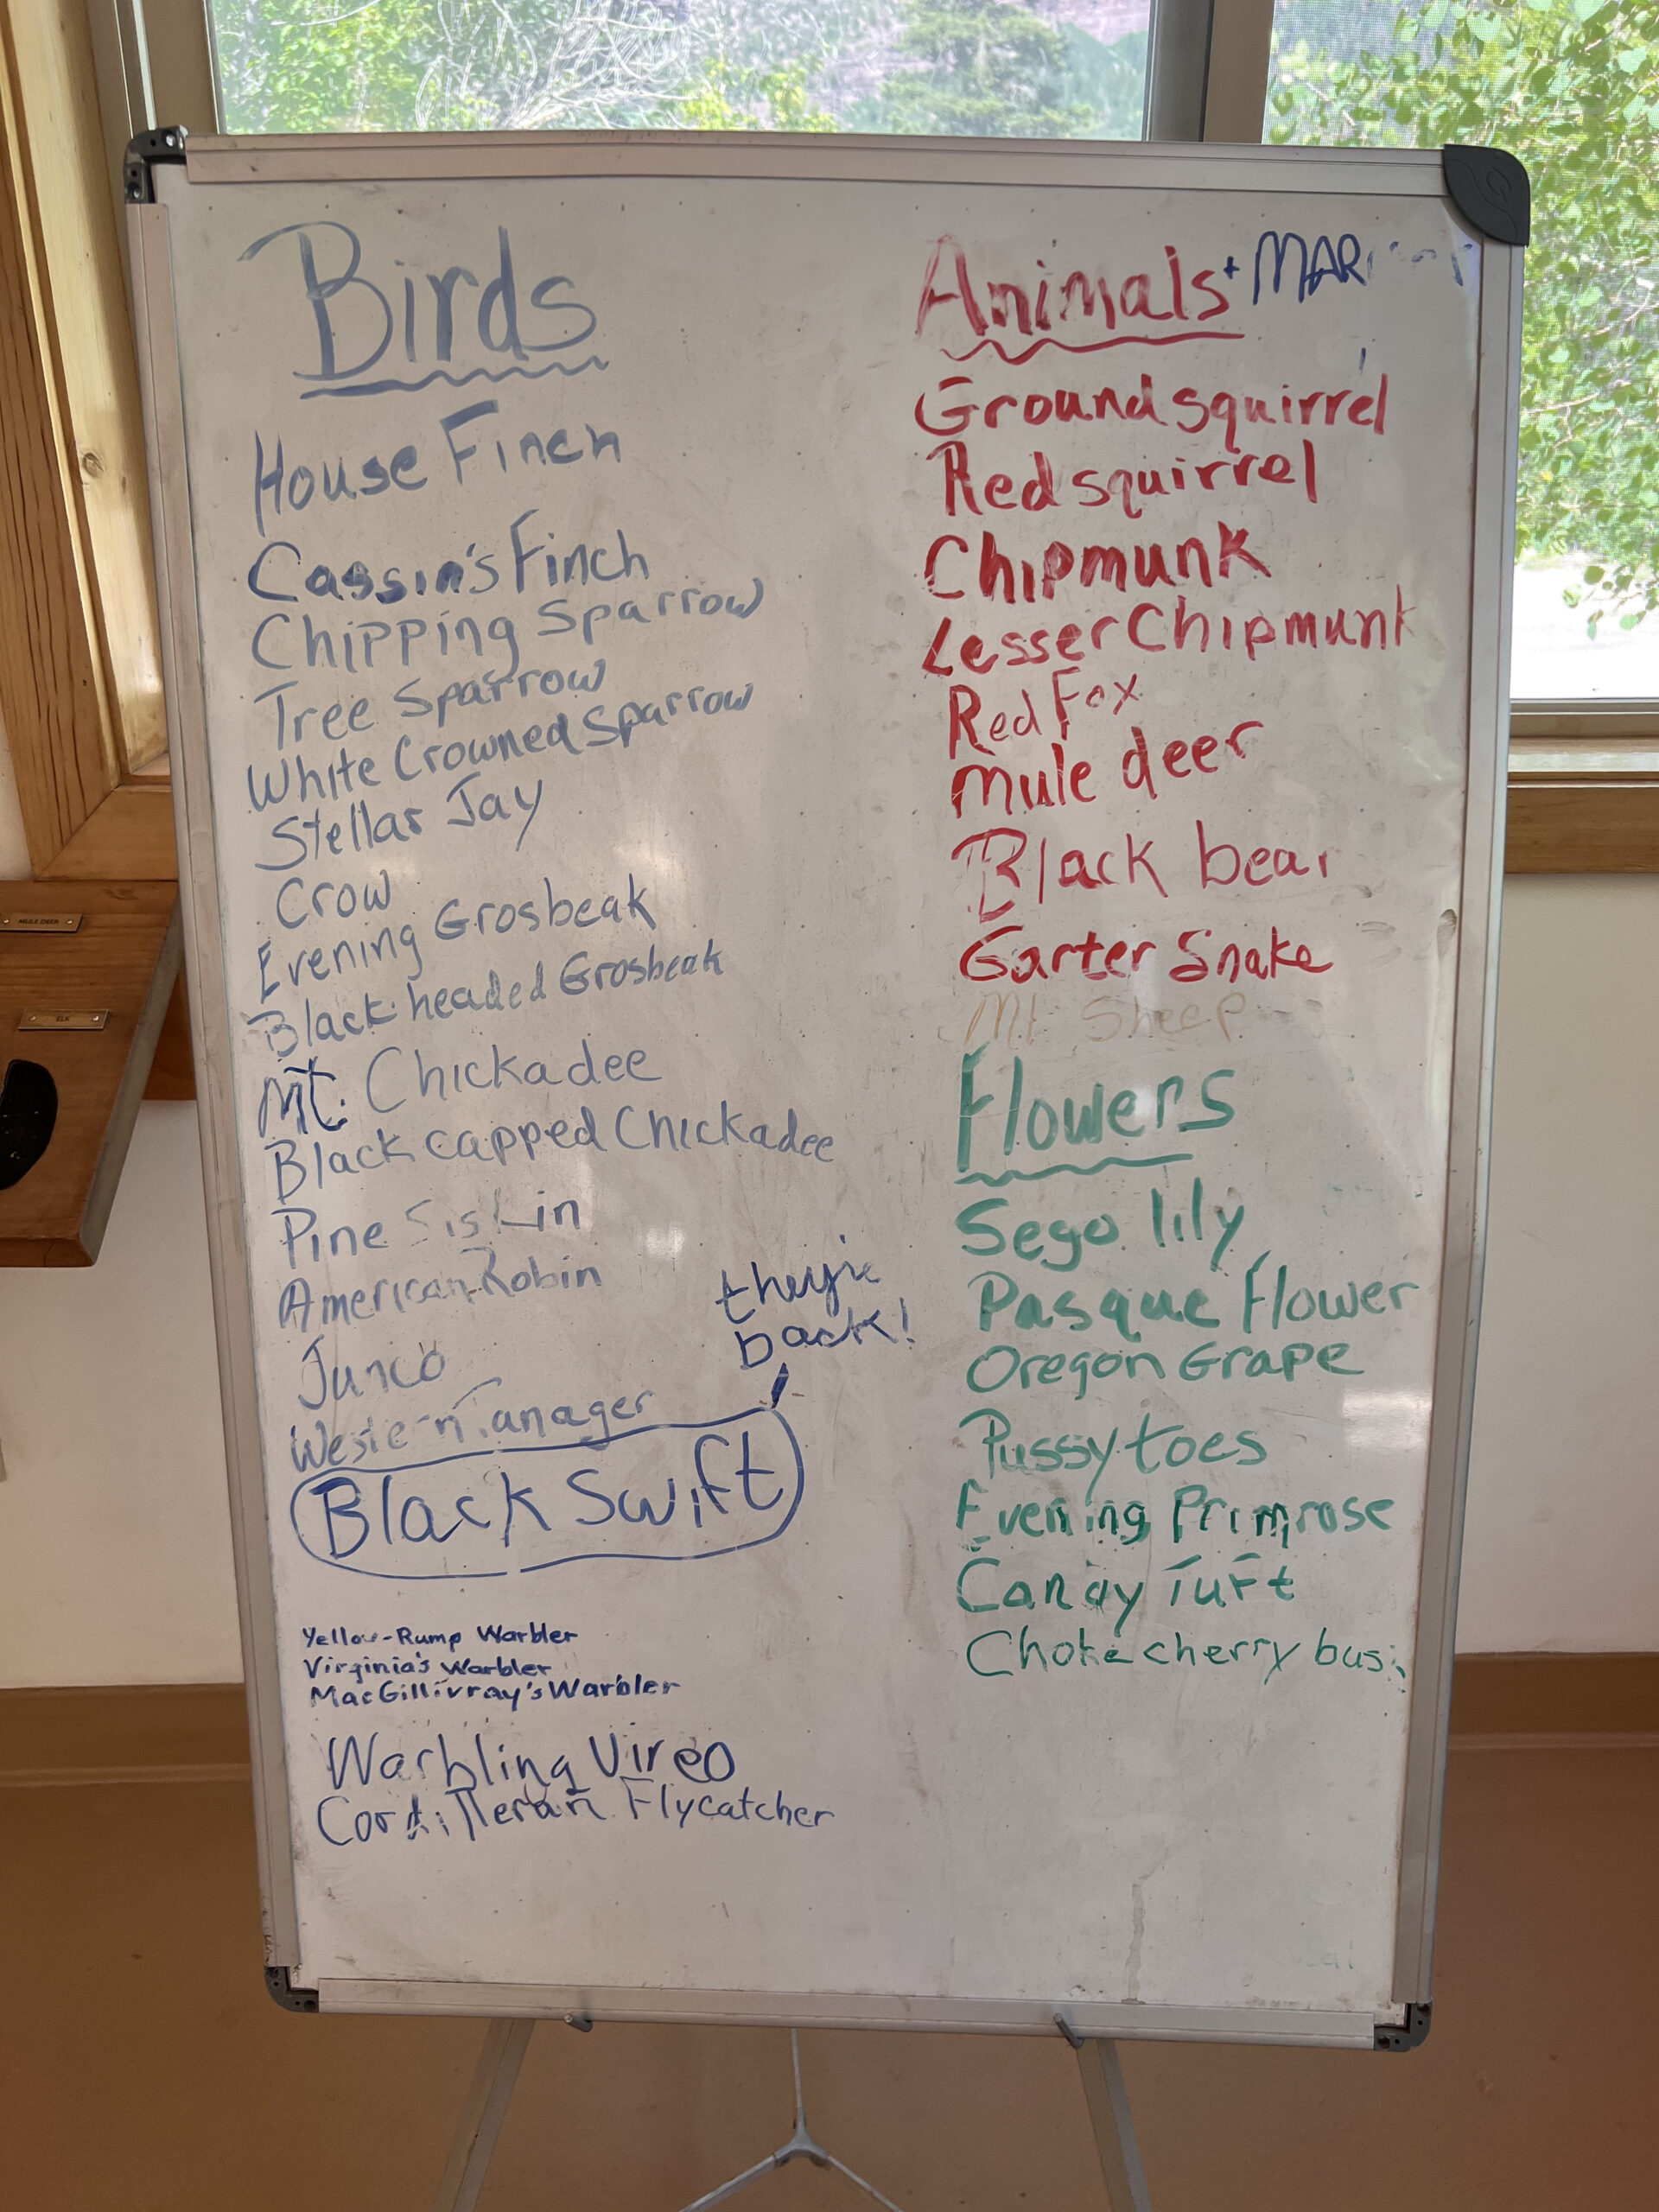 Birds
House Finch
Cassin's Finch
Chipping Sparrow
Tree Sparrow
White Crowned Sparrow
Stellar Jay
Crow
Evening Grosbeak
Black-headed Grosbeak
Mt. Chickadee
Black capped Chickadee
Pine Siskin
American Robin
Junco
Western Tanager
they're
back!
Black Swift
Yellow-Rump Warbler
Virginia's Warbler
MacGillivray's Warbler
Warbling Vireo
Cordilleran Flycatcher
Animals +
Ground squirrel
Red squirrel
Chipmunk
Lesser Chipmunk
Red Fox
Mule deer
Black bear
Garter Snake
Mt. Sheep
Flowers
Sego lily
Pasque Flower
Oregon Grape
Pussy toes
Evening Primrose
Candy Tuft
Choke cherry
MULE DEER
ELK